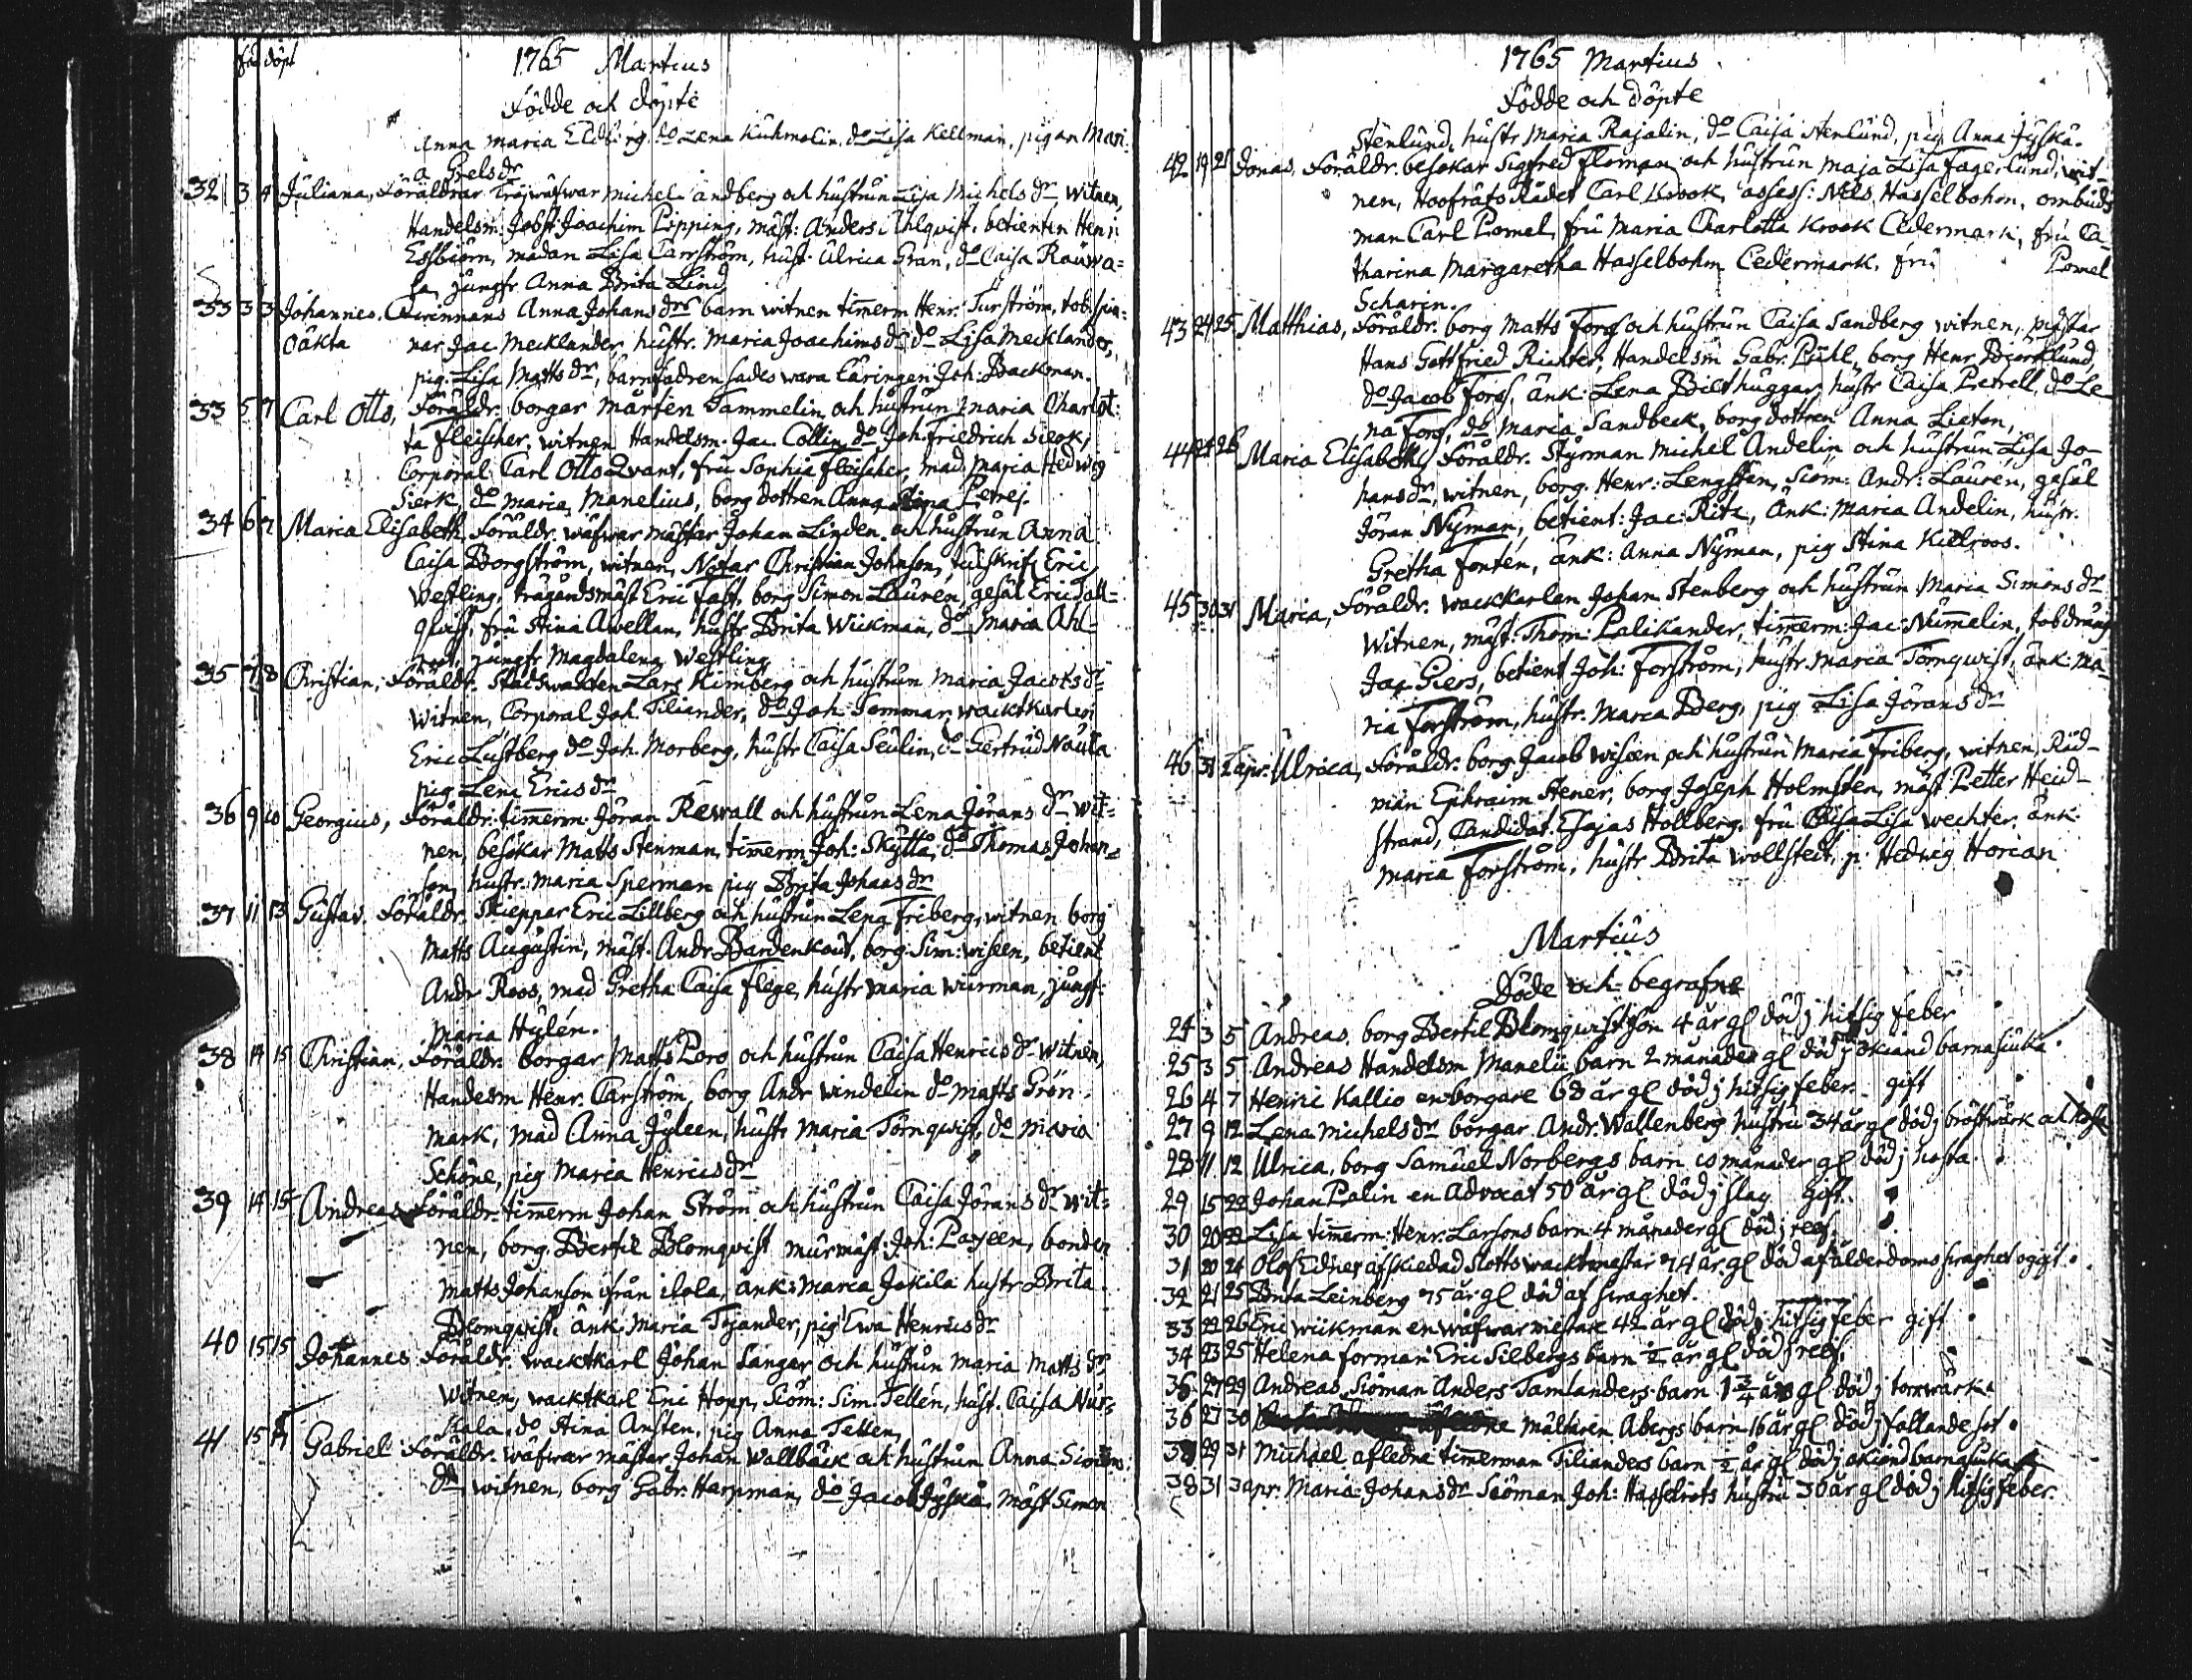 föd döpt
1765 Martius
Födde och döpte
Anna Maria Edberg do Lena Kuhmolin, do Lisa Kellman, pigan Mari-
a Grels dr
32 3 4 Juliana, Föräldrar Tröjwäfwar Michel Sandberg och hustrun Lisa Michels dr witnen,
Handelsm: Jobst Joachim Pipping, mäst: Anders Ahlqvist, betienten Henr:
Essbiörn, madam Lisa Carström, hust. Ulrica Gran, do Caisa Rauwa-
la, jungfr Anna Brita Lind
33 3 3 Johannes, Qwinnans Anna Johans drs barn witnen timerm Henr: Turström, tob.spin-
oäkta nar Jac Mecklander, hustr. Maria Joachims dr do Lisa Mecklander,
pig. Lisa Matts dr, barnfadren sades wara Läringen Joh: Backman.
33 5 7 Carl Otto, Föräldr: borgar Mårten Tammelin och hustrun Maria Charlot-
ta Fleischer, witnen Handelsm. Jac Collin do Joh: Friedrich Sierk,
Corporal Carl Otto Qvant, fru Sophia Fleischer, mad. Maria Hedwig
Sierk, do Maria Manelius, borg dottren Anna Stina Petrej.
34 6 7 Maria Elisabeth Föräldr. wäfwar mästar Johan Linden och hustrun Anna
Caisa Borgström, witnen, Notar Christian Johnson, Eric
Westling, trägårdsmäst Eric Fast, borg Simon Lauren, gesäl Eric Tall-
qvist, fru Stina Awellan, hustr Brita Wickman, do Maria Ahl-
jungfr Magdalena Westling
35 7 8 Christian, Föräldr. Stadswakten Lars Kimberg och hustrun Maria Jacobs dr
witnen, Corporal Joh Tiliander, do Joh Tammar, wacktkarlen
Eric Lustberg do Joh. Morberg, hustr Caisa Seulin, do Giertrud Naula
pig Lena Erics dr
36 9 10 Georgius, Föräldr: timerm Jöran Rewall och hustrun Lena Jörans dr wit-
nen, besökar Matts Stenman, timerm Joh: Skyttä, do Thomas Johan-
son, hustr. Maria Sperman pig Brita Johans dr
37 11 13 Gustav. Föräldr. Skieppar Eric Lillberg och hustrun Lena Friberg, witnen borg
Matts Augustin, mäst. Andr Bardenkout, borg. Sim: wiseen, betient
Andr Roos, mad Gretha Caisa Flege, hustr Maria Wiurman, jungf:
Maria Hylén.
38 14 15 Christian, Föräldr. borgar Matts Poro och hustrun Caisa Henrics dr witnen,
Handesm Henr. Carström, borg Andr Windelin do Matts Grön-
mark, mad Anna Jyleen, hustr Maria Törnqwist, do Maria
Schöne, pig Maria Henrics dr
39 14 15 Andreas Föräldr. timerm Johan Ström och hustrun Caisa Jörans dr wit-
nen, borg. Bertil Blomqvist murmäst: Joh: Payeen, bonden
Matts Johanson ifrån ilola, ank: Maria Jokila hustr Brita
Blomqvist, änk: Maria Tyjander, pig Ewa Henrics dr
40 15 15 Johannes Föräldr. wacktkarl Johan Sangar och hustrun Maria Matts dr
witnen, wacktkarl Eric Hopp, Siöm: Sim. Tellén, hust. Caisa Nur-
kala, do Stina Ansten, pig Anna Tellen,
41 15 17 Gabriel Föräldr. wäfwar mästar Johan Wallbäck och hustrun Anna Simons
dr witnen, borg Gabr. Harpman, do Jacob Jyskä, mäst Simon
1765 Martius
Födde och döpte
Stenlund, hustr Maria Rajalin, do Caisa Stenlund, pig Anna Jyskä.
42 19 21 Jonas, Föräldr. besökar Sigfred Floman och hustrun Maja Lisa Fagerlund, wit-
nen, Hoofräts Rådet Carl Krook, assess: Nils Hasselbohm, ombuds
man Carl Pomel, fru Maria Charlotta Krook Cedermark, fru Ca-
tharina Margaretha Hasselbohm Cedermark, fru Pomel
Scharin.
43 24 25 Matthias, Föräldr. borg Matts Forss och hustrun Caisa Sandberg witnen,
Hans Gottfried Richter, Handelsm Gabr. Pühl, borg Henr. Biörklund,
do Jacob Forss, änk: Lena Bilthuggar, hustr Caisa Petrell, do Le-
na Forss, do Maria Sandbeck, borg dottren Anna Lieton,
44 24 26 Maria Elisabeth Föräldr. Styrman Michel Andelin och hustrun Lisa Jo-
hans dr, witnen, borg. Henr: Lengssten, Siöm: Andr: Lauren, gesäl
Jöran Nyman, betient: Jac: Ritz, Änk: Maria Andelin, hustr.
Gretha Fontén, änk: Anna Nyman, pig Stina Killroos.
45 30 31 Maria, Föräldr: wacktkarlen Johan Stenberg och hustrun Maria Simons dr
witnen, mäst: Thom: Palikander, timerm: Jac: Numelin, tobdräng
Jac. Giers, betient Joh: Forström, hustr. Maria Törnqwist, änk: Ma-
ria Forström, hustr. Maria Berg, pig Lisa Jörans dr
46 31 1 apr. Ulrica, Föräldr. borg Jacob Wiseen och hustrun Maria Friberg, witnen, Råd-
man Ephraim Stener, borg Joseph Holmsten, mäst Petter Heid-
strand, Candidat. Esajas Hollberg, fru Caisa Lisa Wechter, änk.
Maria Forström, hustr Brita Wollstedt, p. Hedwig Horian
Martius
Döde och begrafne
24 3 5 Andreas, borg Bertil Blomqwist son 4 år gl död j hitsig feber
25 3 5 Andreas Handelsm Manelii barn 2 månader gl död j okiand barnasiuka.
26 4 7 Henric Kallio en borgare 68 år gl död j hitsig feber. gift
27 9 12 Lena Michels dr borgar Andr. Wallenberg hustru 34 år gl död j bröstwärk och hosta
28 11 12 Ulrica, borg Samuel Norbergs barn 10 månader gl död j hosta.
29 15 22 Johan Palin en Advocat 50 år gl död j slag. gift.
30 20 22 Lisa timerm: Henr: Larsons barn 4 månader gl död j rees
31 20 24 Olof Edner afskiedad Slottswacktmästar 74 år gl död af ålderdoms swaghet ogift.
32 21 25 Brita Leinberg 75 år gl död af swaghet.
33 22 26 Eric Wiikman en wäfwar mestare 42 år gl död j hitsig feber gift
34 23 25 Helena forman Eric Silbergs barn ½ år gl död j rees.
35 27 29 Andreas Siöman Anders Tamlanders barn 1 ¾ års gl död j torrwärk.
36 27 30 mältaren Åbergs barn 16 år gl död j fallande sot.
37 29 31 Michael afledna timerman Tilianders barn ½ år gl död j okiend barnasiuka
38 31 3 apr. Maria Johans dr Siöman Joh: Hasselrots hustru 36 år gl död j hitsig feber.